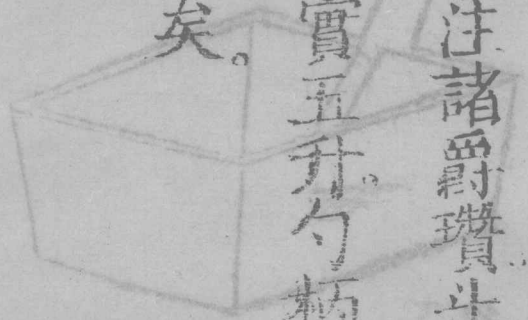 注諸爵瓚
實五升。勺柄
矣。